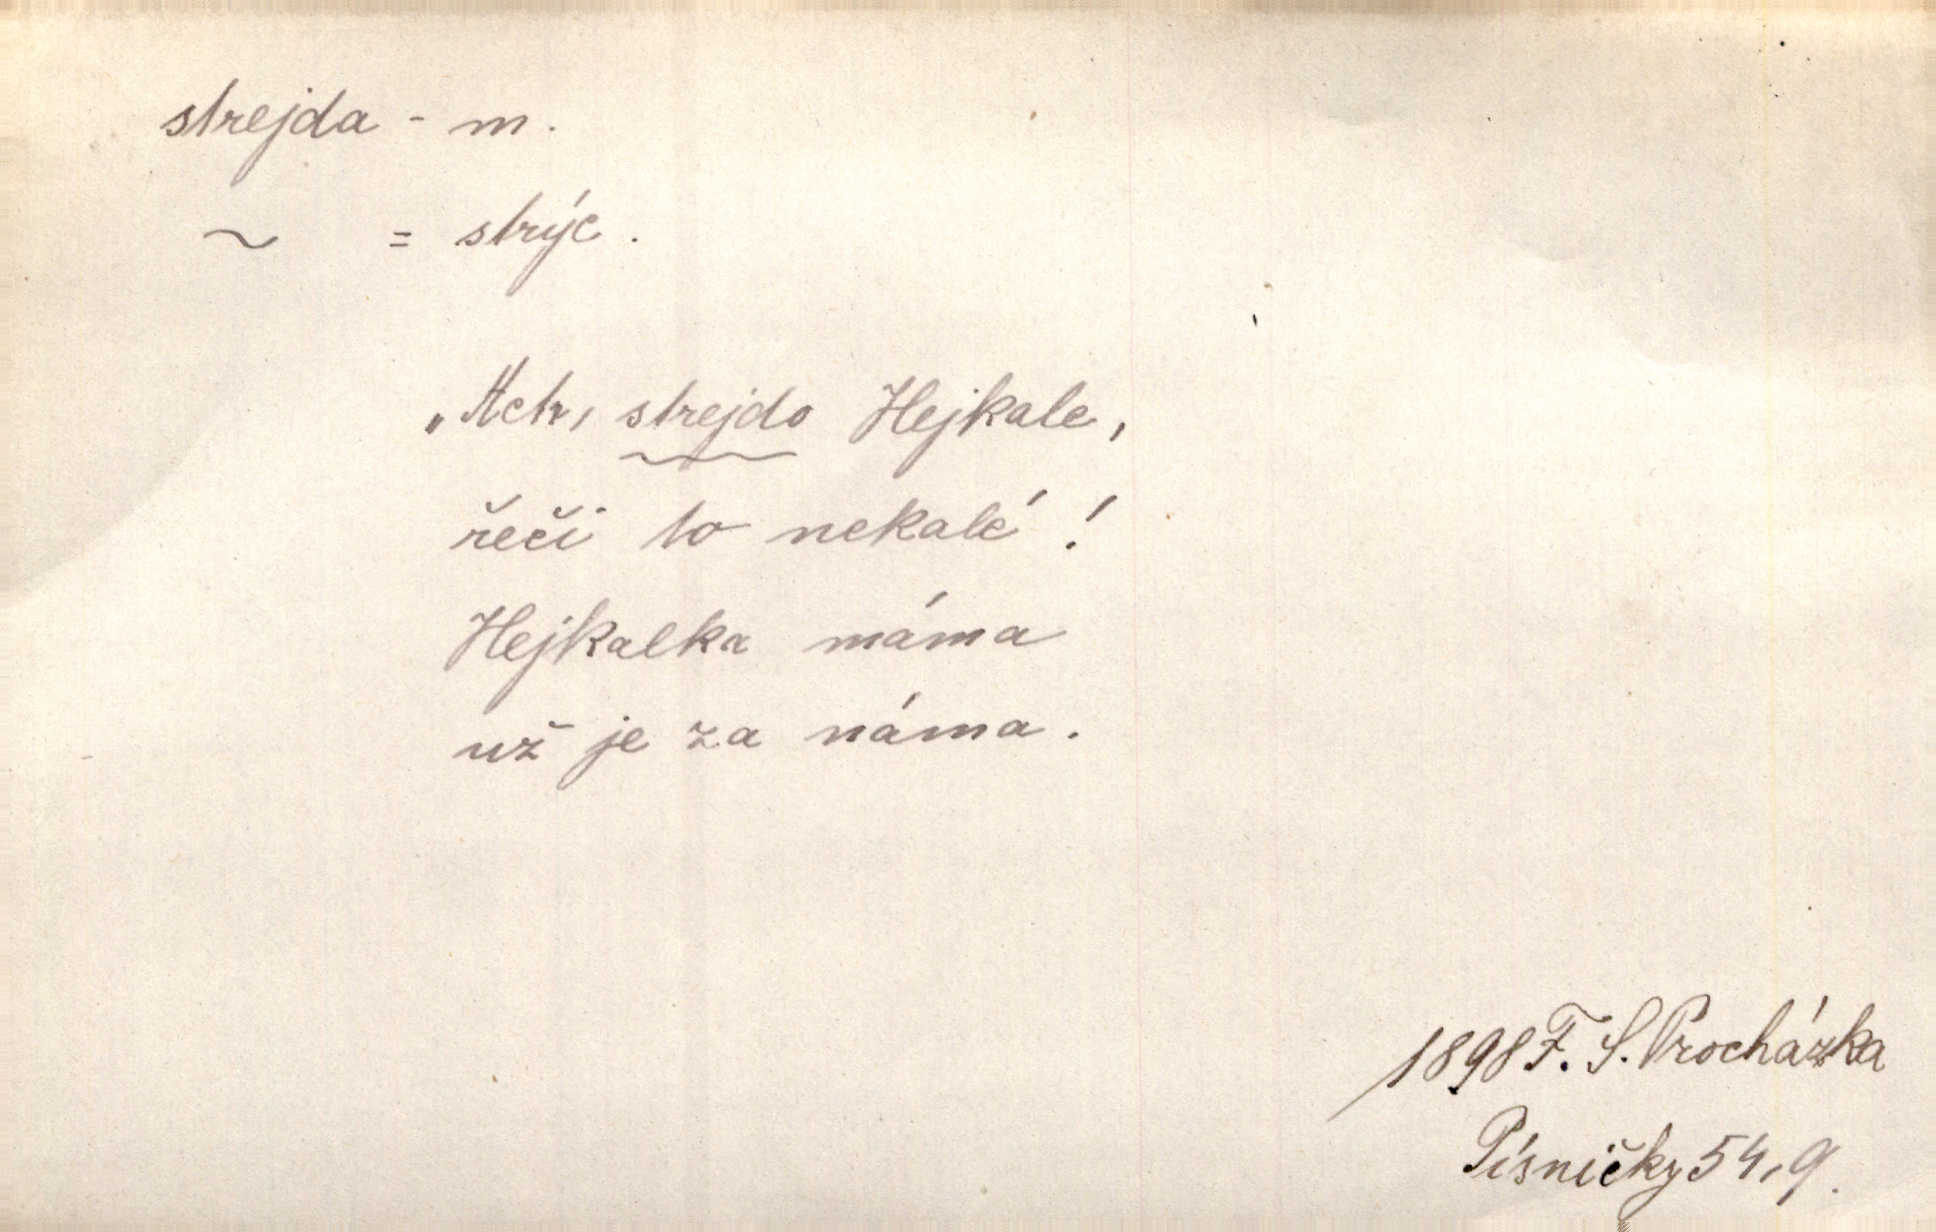 strejda - m.
~ = strýc.
„Ach, strejdo Hejkale,
řeči to nekalé!
Hejkalka máma
už je za náma.
1898 F. S. Procházka
Písničky 54, 9.